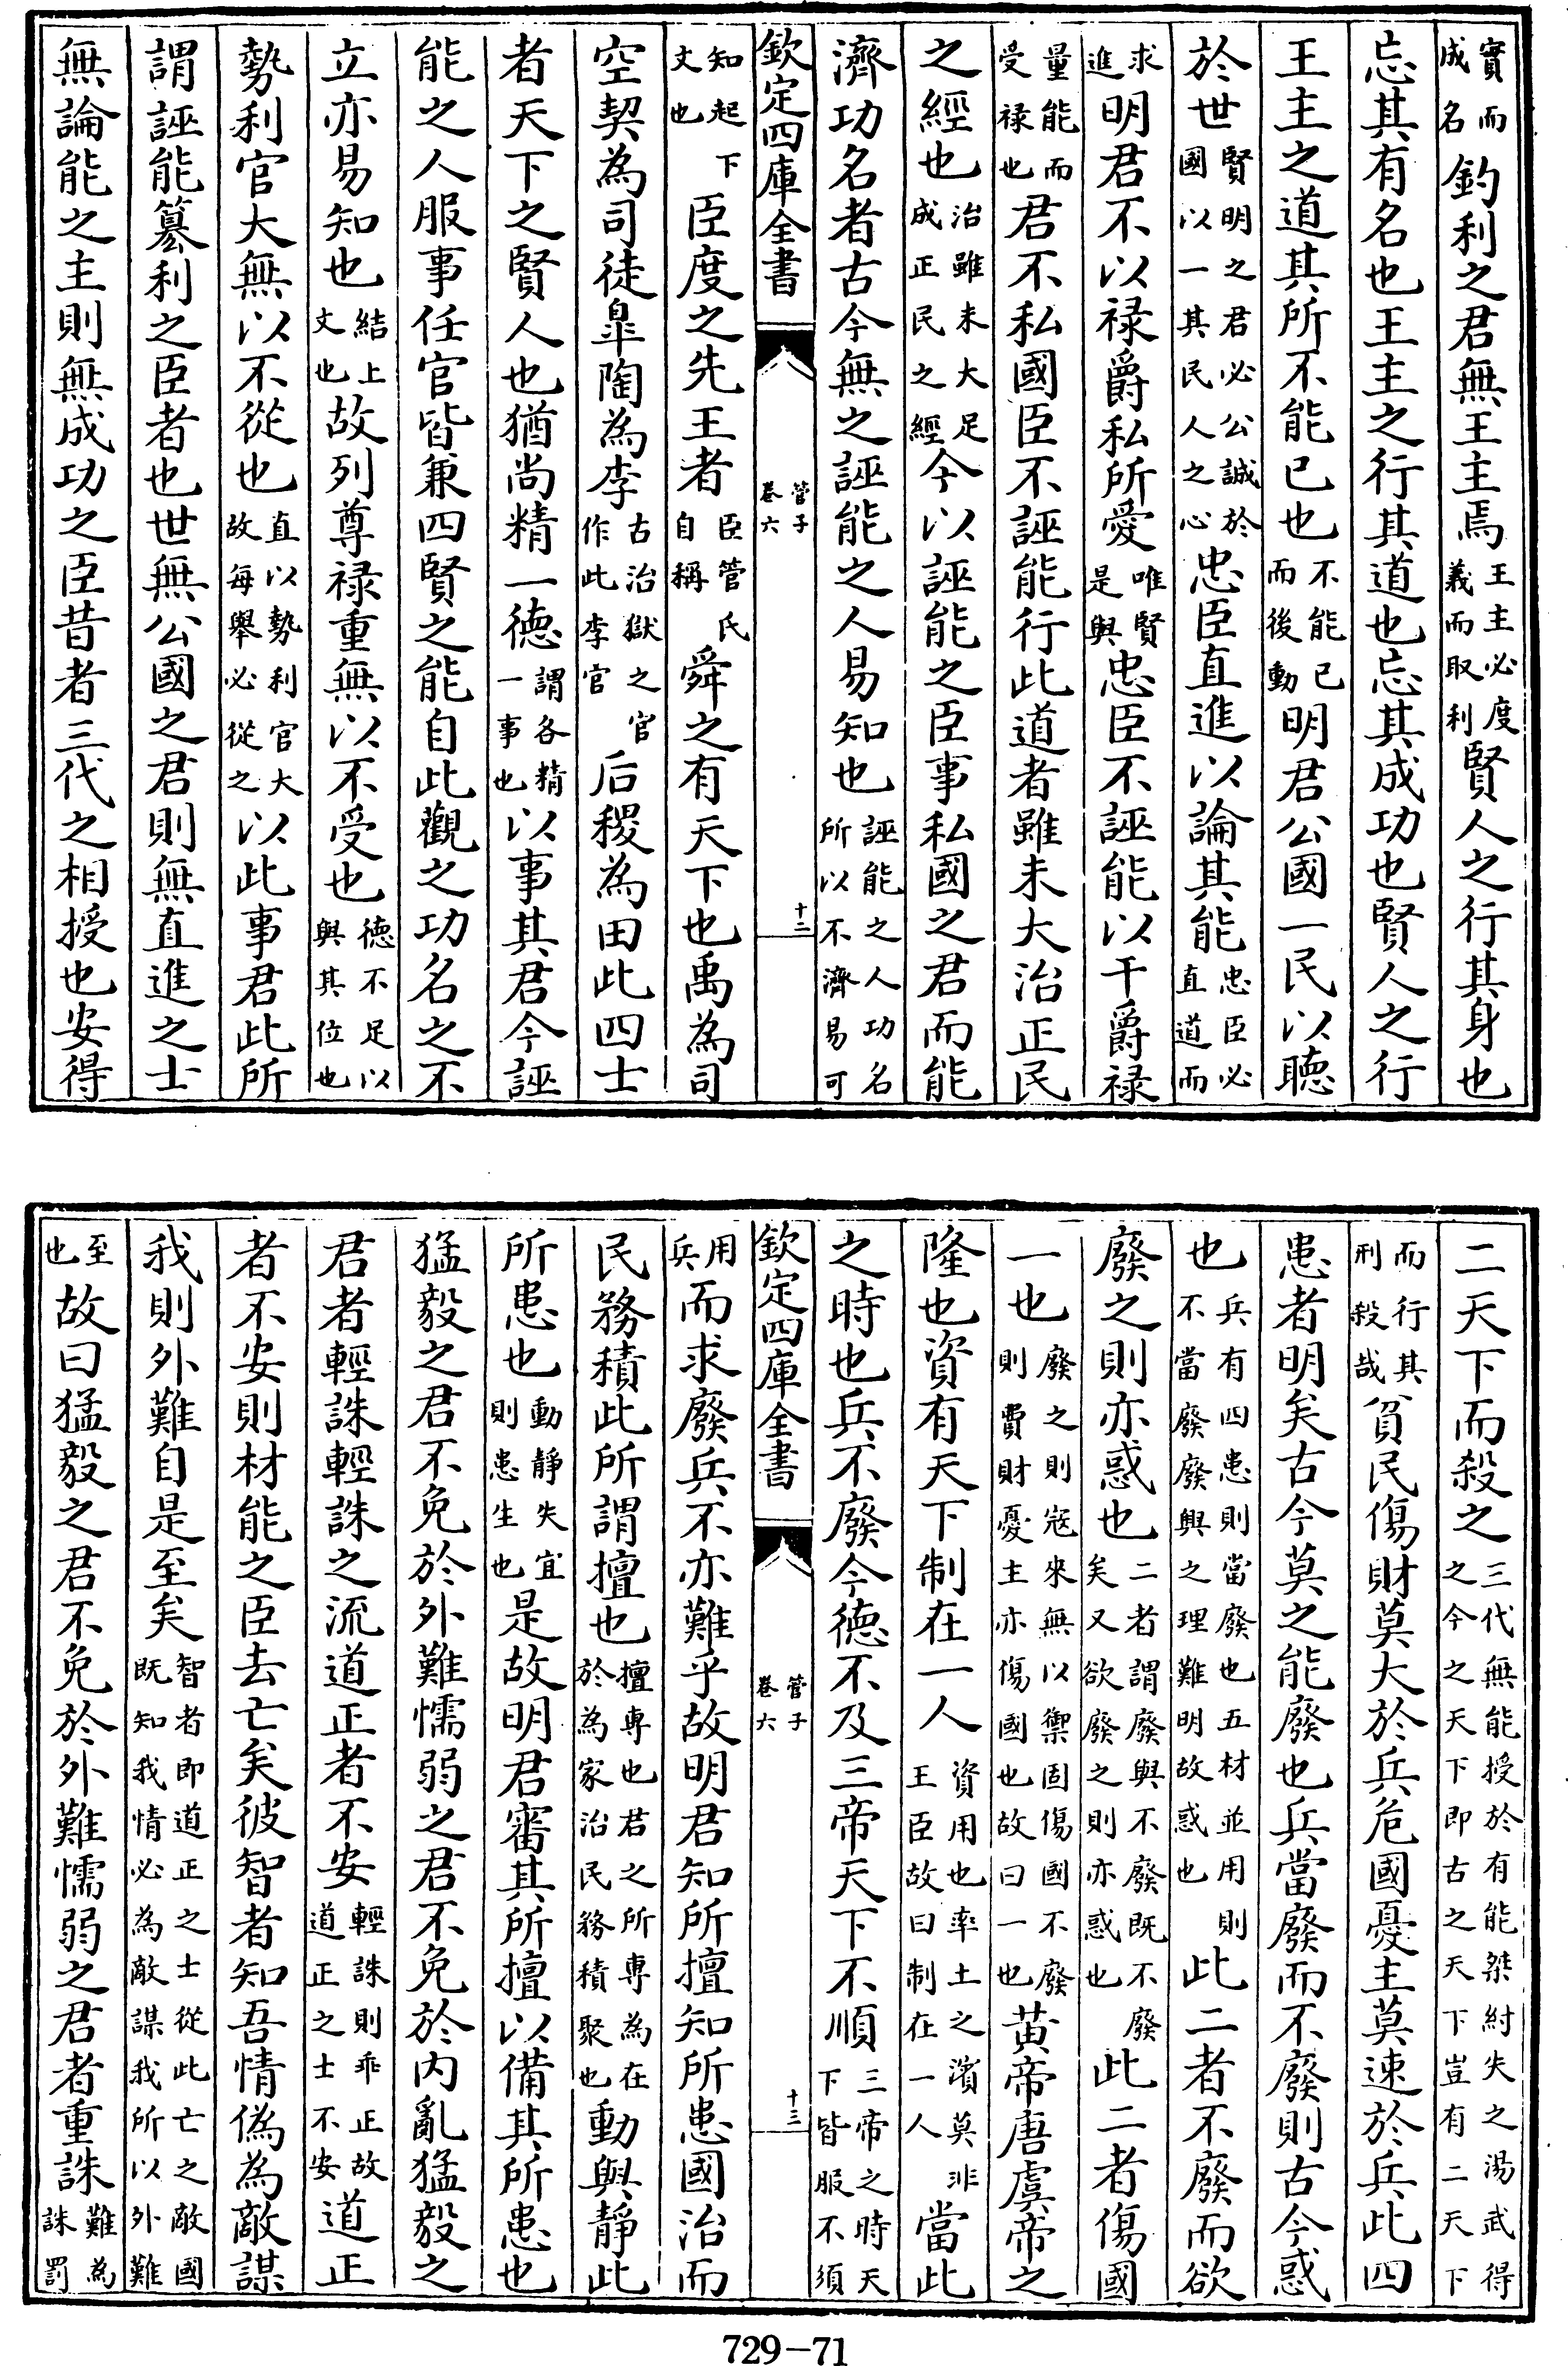 實而成名釣利之君無王主焉王主必度義而取利賢人之行其身也
忘其有名也王主之行其道也忘其成功也賢人之行
王主之道其所不能已也不能已而後動明君公國一民以聽
於世賢明之君必公誠於國以一其民人之心忠臣直進以論其能忠臣必直道而
求進明君不以祿爵私所愛唯賢是與忠臣不誣能以干爵祿
量能而受祿也君不私國臣不誣能行此道者雖未大治正民
之經也治雖未大足成正民之經今以誣能之臣事私國之君而能
濟功名者古今無之誣能之人易知也誣能之人功名所以不濟易可
欽定四庫全書 管子卷六 十二
知起下文也臣度之先王者臣管氏自稱舜之有天下也禹為司
空契為司徒臯陶為李古治獄之官作此李官后稷為田此四士
者天下之賢人也猶尚精一德謂各精一事也以事其君今誣
能之人服事任官皆兼四賢之能自此觀之功名之不
立亦易知也結上文也故列尊祿重無以不受也德不足以與其位也
勢利官大無以不從也直以勢利官大故每舉必從之以此事君此所
謂誣能簒利之臣者也世無公國之君則無直進之士
無論能之主則無成功之臣昔者三代之相授也安得
二天下而殺之三代無能授於有能桀紂失之湯武得之今之天下即古之天下豈有二天下
而行其刑殺哉貧民傷財莫大於兵危國憂主莫速於兵此四
患者明矣古今莫之能廢也兵當廢而不廢則古今惑
也兵有四患則當廢也五材並用則不當廢廢興之理難明故惑也此二者不廢而欲
廢之則亦惑也二者謂廢與不廢既不廢矣又欲廢之則亦惑也此二者傷國
一也廢之則寇來無以禦固傷國不廢則費財憂主亦傷國也故曰一也黃帝唐虞帝之
隆也資有天下制在一人資用也率土之濱莫非王臣故曰制在一人當此
之時也兵不廢今德不及三帝天下不順三帝之時天下皆服不須
欽定四庫全書 管子卷六 十三
用兵而求廢兵不亦難乎故明君知所擅知所患國治而
民務積此所謂擅也擅專也君之所專為在於為家治民務積聚也動與靜此
所患也動靜失宜則患生也是故明君審其所擅以備其所患也
猛毅之君不免於外難懦弱之君不免於內亂猛毅之
君者輕誅輕誅之流道正者不安輕誅則乖正故道正之士不安道正
者不安則材能之臣去亡矣彼智者知吾情偽為敵謀
我則外難自是至矣智者即道正之士從此亡之敵國既知我情必為敵謀我所以外難
至也故曰猛毅之君不免於外難懦弱之君者重誅難為誅罰
729－71